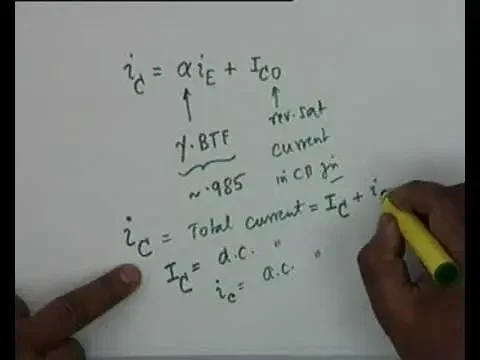 i_C = α i_E + I_CO
γ·BTF rev. sat
~ .985 current
in CB jn
i_C = Total current = I_C + i
I_C = d.c. "
i_c = a.c. "